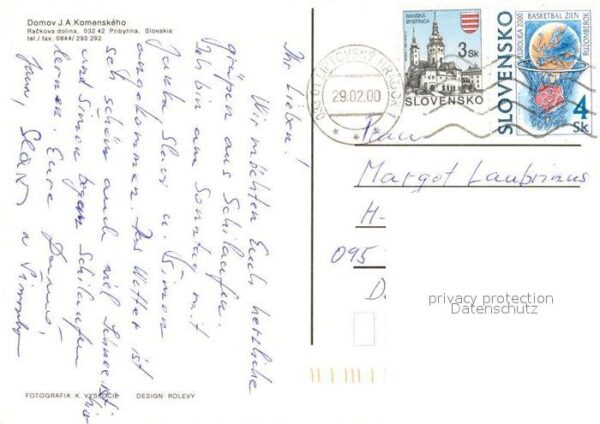 Domov J.A.Komenského
Račkova dolina, 032 42 Pribylina, Slovakia
tel./fax: 0844/ 293 292
Ihr Lieben!
Wir möchten Euch herzliche
grüßen aus Schilaufen.
Ich bin am Sonntag mit
Janka, Slavi u. Simon
angekommen. Das Wetter ist
sehr schön auch viel Schnee ist
und Simon Schilaufen
lernen. Eure
Jana,
a
FOTOGRAFIA K. VYSKOČIL DESIGN ROLEVY
BANSKÁ
BYSTRICA
3 Sk
SLOVENSKO
SLOVENSKO
EUROLIGA 2000
BASKETBAL ŽIEN
RUŽOMBEROK
4
Sk
LIPTOVSKÝ HRÁDOK 1
29.02.00
Frau
Margot Laubrinus
H-
095
D
privacy protection
Datenschutz